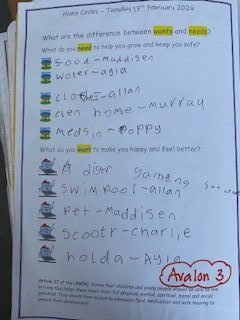 Home Circles - Tuesday 17th February 2026
What are the difference between wants and needs?
What do you need to help you grow and keep you safe?
Food - Maddisen
Woter - Ayla
Clothes - allan
clen home - Murray
Medsin - Poppy
What do you want to make you happy and feel better?
A gameng
SWim Pool - allan
Pet - Maddisen
Scootr - charlie
holda - Ayla
Avalon 3
Article 27 of the UNCRC states that children and young people should be able to live
in a way that helps them reach their full physical, mental, spiritual, moral and social
potential. They should have access to adequate food, medication and safe housing to
ensure their development.